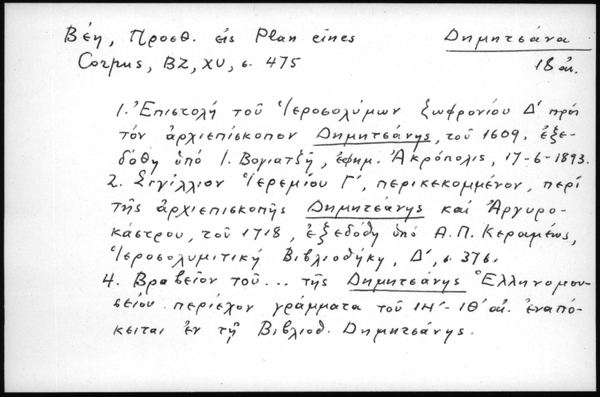 Βέη, Προσθ. εἰς Plan eines
Corpus, BZ, XV, σ. 475
Δημητσάνα
18 αἰ.
1. Ἐπιστολή τοῦ Ἱεροσολύμων Σωφρονίου Δ' πρός
τόν ἀρχιεπίσκοπον Δημητσάνης, τοῦ 1609. ἐξε-
δόθη ὑπό Ι. Βογιατζῆ, ἐφημ. Ἀκρόπολις, 17-6-1893.
2. Σιγίλλιον Ἱερεμίου Γ', περικεκομμένον, περί
τῆς ἀρχιεπισκοπῆς Δημητσάνης καί Ἀργυρο-
κάστρου, τοῦ 1718, ἐξεδόθη ὑπό Α.Π. Κεραμέως,
Ἱεροσολυμιτική Βιβλιοθήκη, Δ', σ. 376.
4. Βραβεῖον τοῦ... τῆς Δημητσάνης Ἑλληνομου-
σείου περιέχον γράμματα τοῦ ΙΗ'-ΙΘ' αἰ. ἐναπό-
κειται ἐν τῇ Βιβλιοθ. Δημητσάνης.